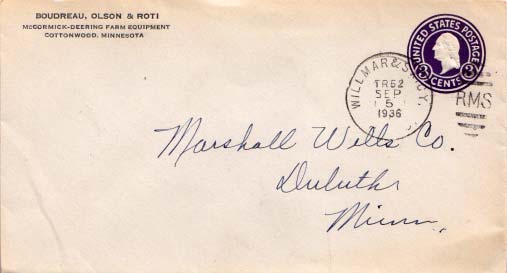 BOUDREAU, OLSON & ROTI
MCCORMICK-DEERING FARM EQUIPMENT
COTTONWOOD, MINNESOTA
UNITED STATES POSTAGE
3 CENTS 3
WILLMAR & S. CY.
TR52
SEP
5
1936
RMS
Marshall Wells Co.
Duluth
Minn.